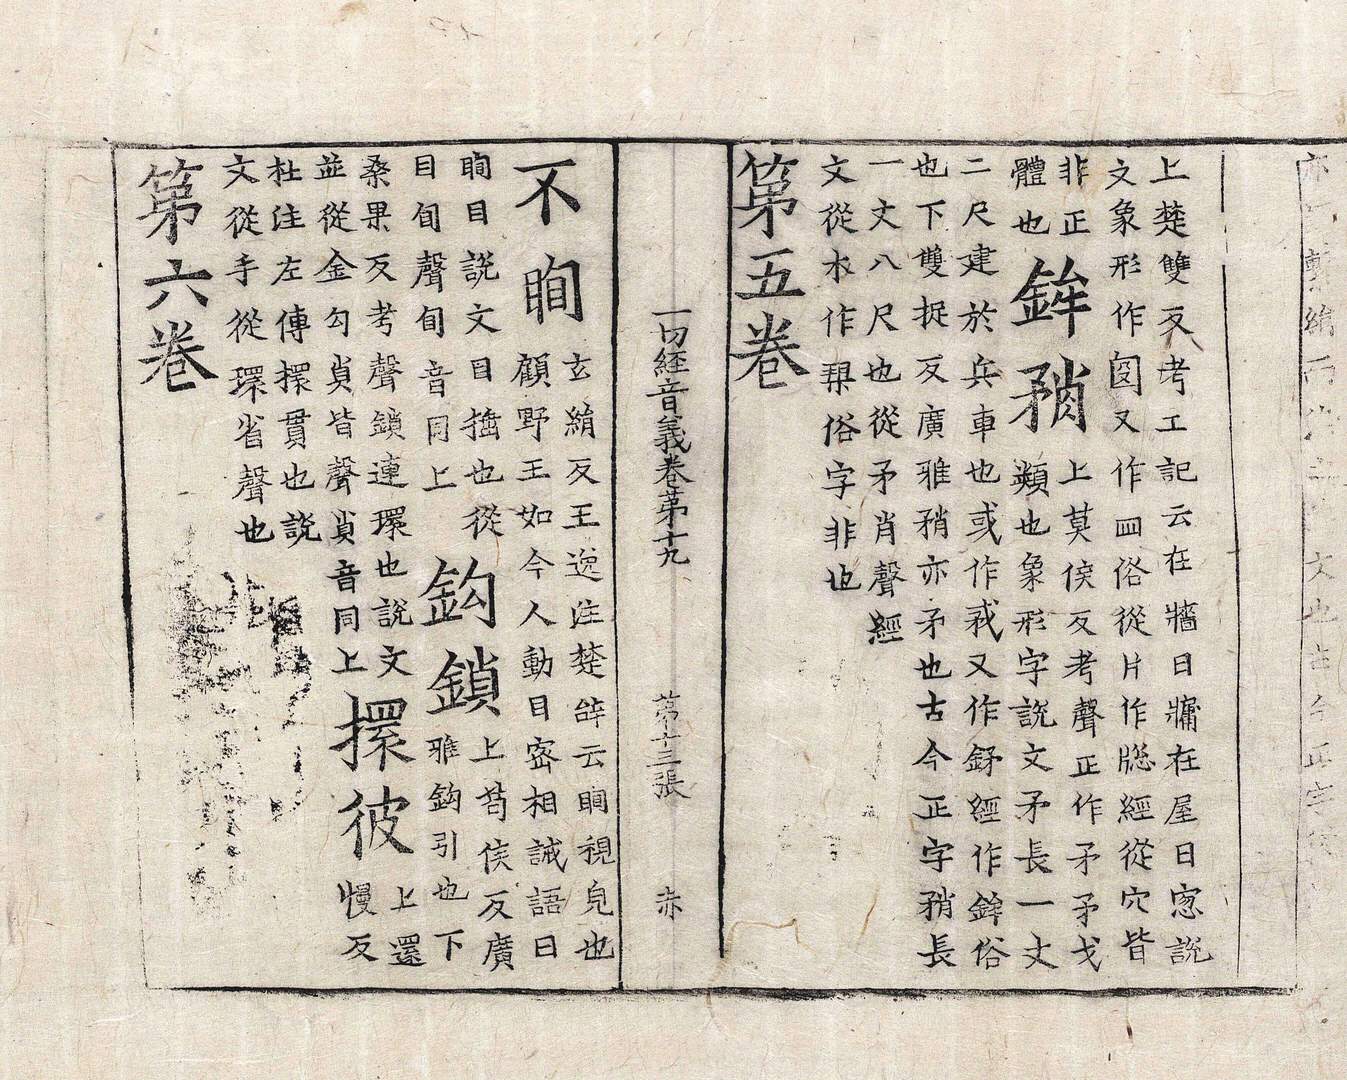 上楚雙反考工記云在牆曰牖在屋曰窓說
文象形作囪又作四俗從片作牎經從穴皆
非正
體也
鉾矟
上莫侯反考聲正作矛矛戈
類也象形字說文矛長一丈
二尺建於兵車也或作𢦧又作䥐經作鉾俗
也下雙捉反廣雅矟亦矛也古今正字矟長
一丈八尺也從矛肖聲經
文從木作槊俗字非也
第五卷
一切經音義卷第十九 第十三張 赤
不眴
玄絹反王逸注楚辞云眴視皃也
顧野王如今人動目密相誡語曰
眴目說文目搖也從
目旬聲旬音同上
鈎鎖
上茍侯反廣
雅鈎引也下
桑果反考聲鎖連環也說文
並從金勾𧴪皆聲𧴪音同上
擐彼
上還
慢反
杜注左傳擐貫也說
文從手從環省聲也
第六卷